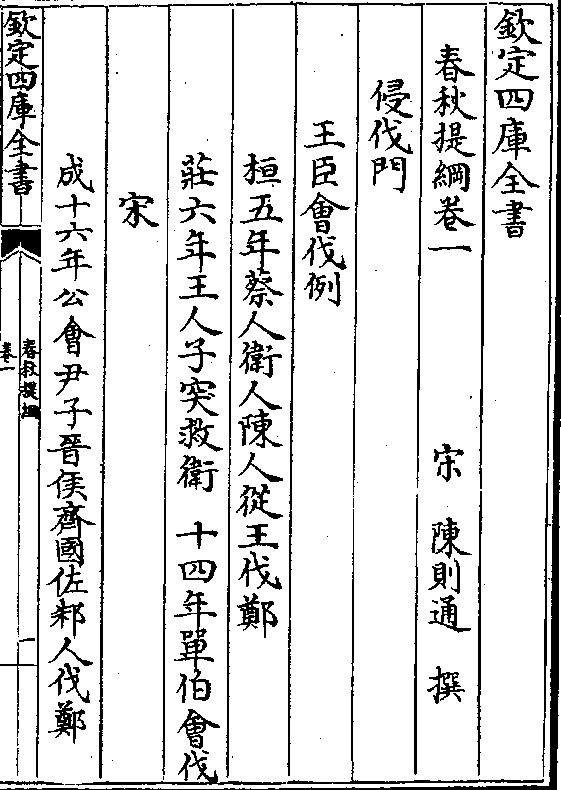 欽定四庫全書
春秋提綱卷一
宋 陳則通 撰
侵伐門
王臣會伐例
桓五年蔡人衛人陳人從王伐鄭
莊六年王人子突救衛 十四年單伯會伐
宋
成十六年公會尹子晉侯齊國佐邾人伐鄭
欽定四庫全書
春秋提綱
卷一
一